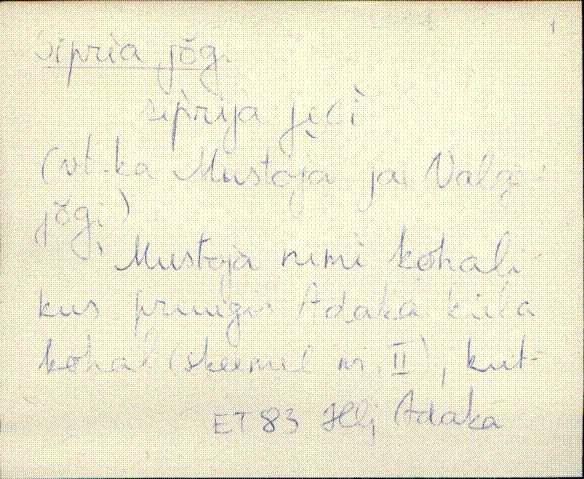 1
Sipria jõg.
siprija jeci
(vt. ka Mustoja ja Valge-
jõgi)
Mustoja nimi kohali-
kus pruugis Adaka küla
kohal (skeemil nr. II), kut-
ET 83 Hlj Adaka